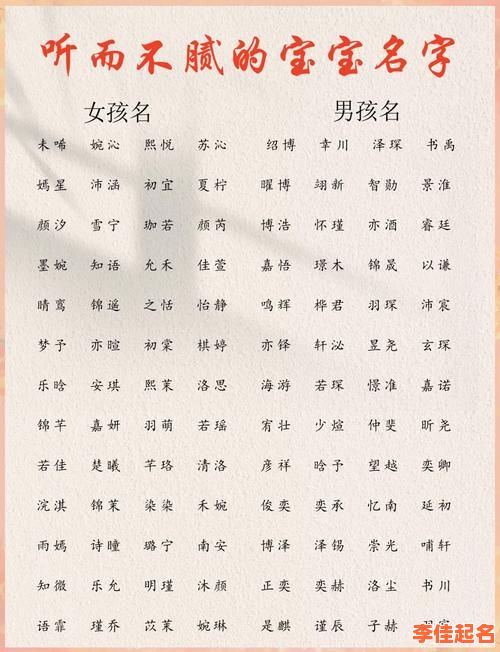 听而不腻的宝宝名字
女孩名 男孩名
未唏 婉沁 熙悦 苏沁 绍博 幸川 泽琛 书禹
嫣星 沛涵 初宜 夏柠 曜博 翊新 智勋 景淮
颜汐 雪宁 珈若 颜芮 博浩 怀瑾 亦酒 睿廷
墨婉 知语 允禾 佳萱 嘉悟 璟木 锦晟 以谦
晴鸾 锦遥 之恬 怡静 鸣辉 桦君 羽琛 沛宸
梦予 亦暄 初棠 棋婷 亦铎 轩泌 昱尧 玄琛
乐晗 安琪 熙茉 洛思 海游 若琛 憬准 嘉诺
锦芊 嘉妍 羽萌 若瑶 宥壮 少煊 仲斐 昕尧
若佳 楚曦 芊珞 清洛 彦祥 晗予 望越 奕卿
浣淇 锦茉 染染 禾婉 俊奕 奕承 忆南 延初
雨嫣 诗瞳 璐宁 南安 博泽 泽锡 崇光 哺轩
知微 乐允 明瑾 沐颜 正奕 奕赫 洛尘 书川
语霏 瑾乔 苡茉 婉琳 是麒 谨辰 子赫
李佳起名